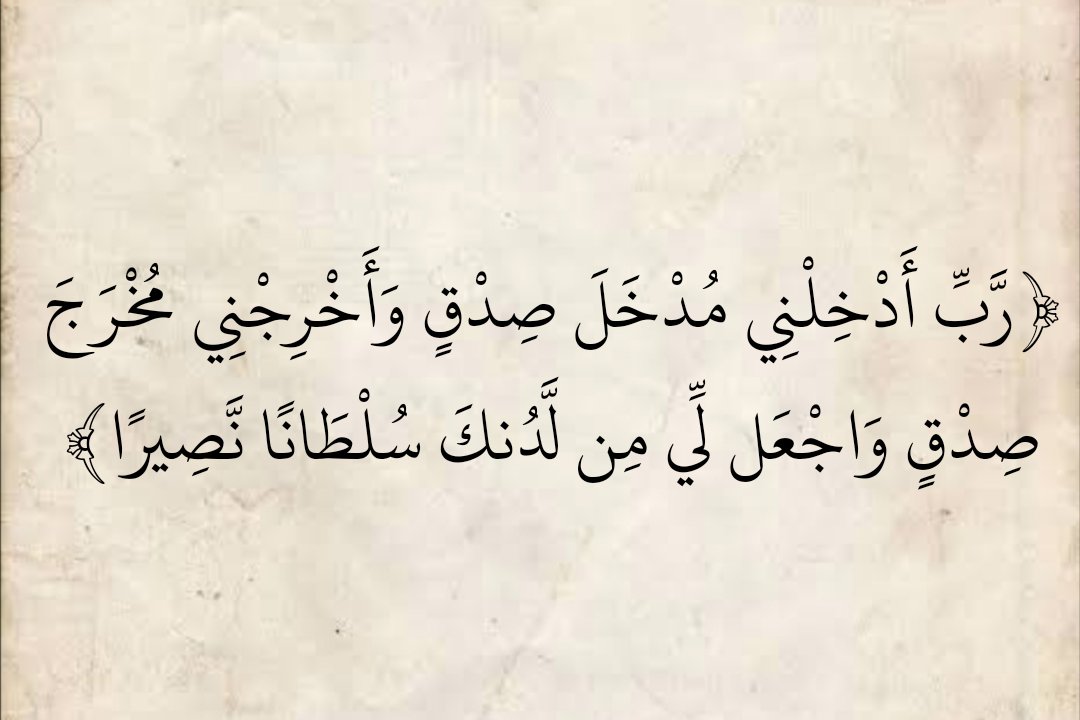 ﴿رَّبِّ أَدْخِلْنِي مُدْخَلَ صِدْقٍ وَأَخْرِجْنِي مُخْرَجَ
صِدْقٍ وَاجْعَل لِّي مِن لَّدُنكَ سُلْطَانًا نَّصِيرًا﴾